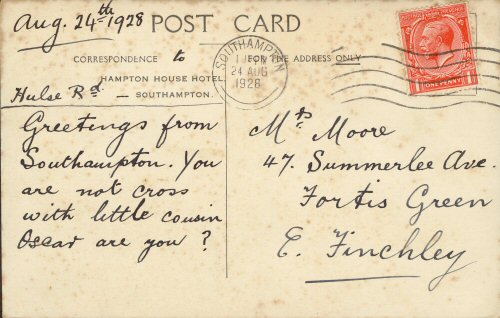 Aug. 24th 1928
POST CARD
CORRESPONDENCE to
FOR THE ADDRESS ONLY
HAMPTON HOUSE HOTEL
Hulse Rd. — SOUTHAMPTON.
SOUTHAMPTON
24 AUG
1928
ONE PENNY
Greetings from
Southampton. You
are not cross
with little cousin
Oscar are you?
Mrs Moore
47. Summerlee Ave.
Fortis Green
E. Finchley